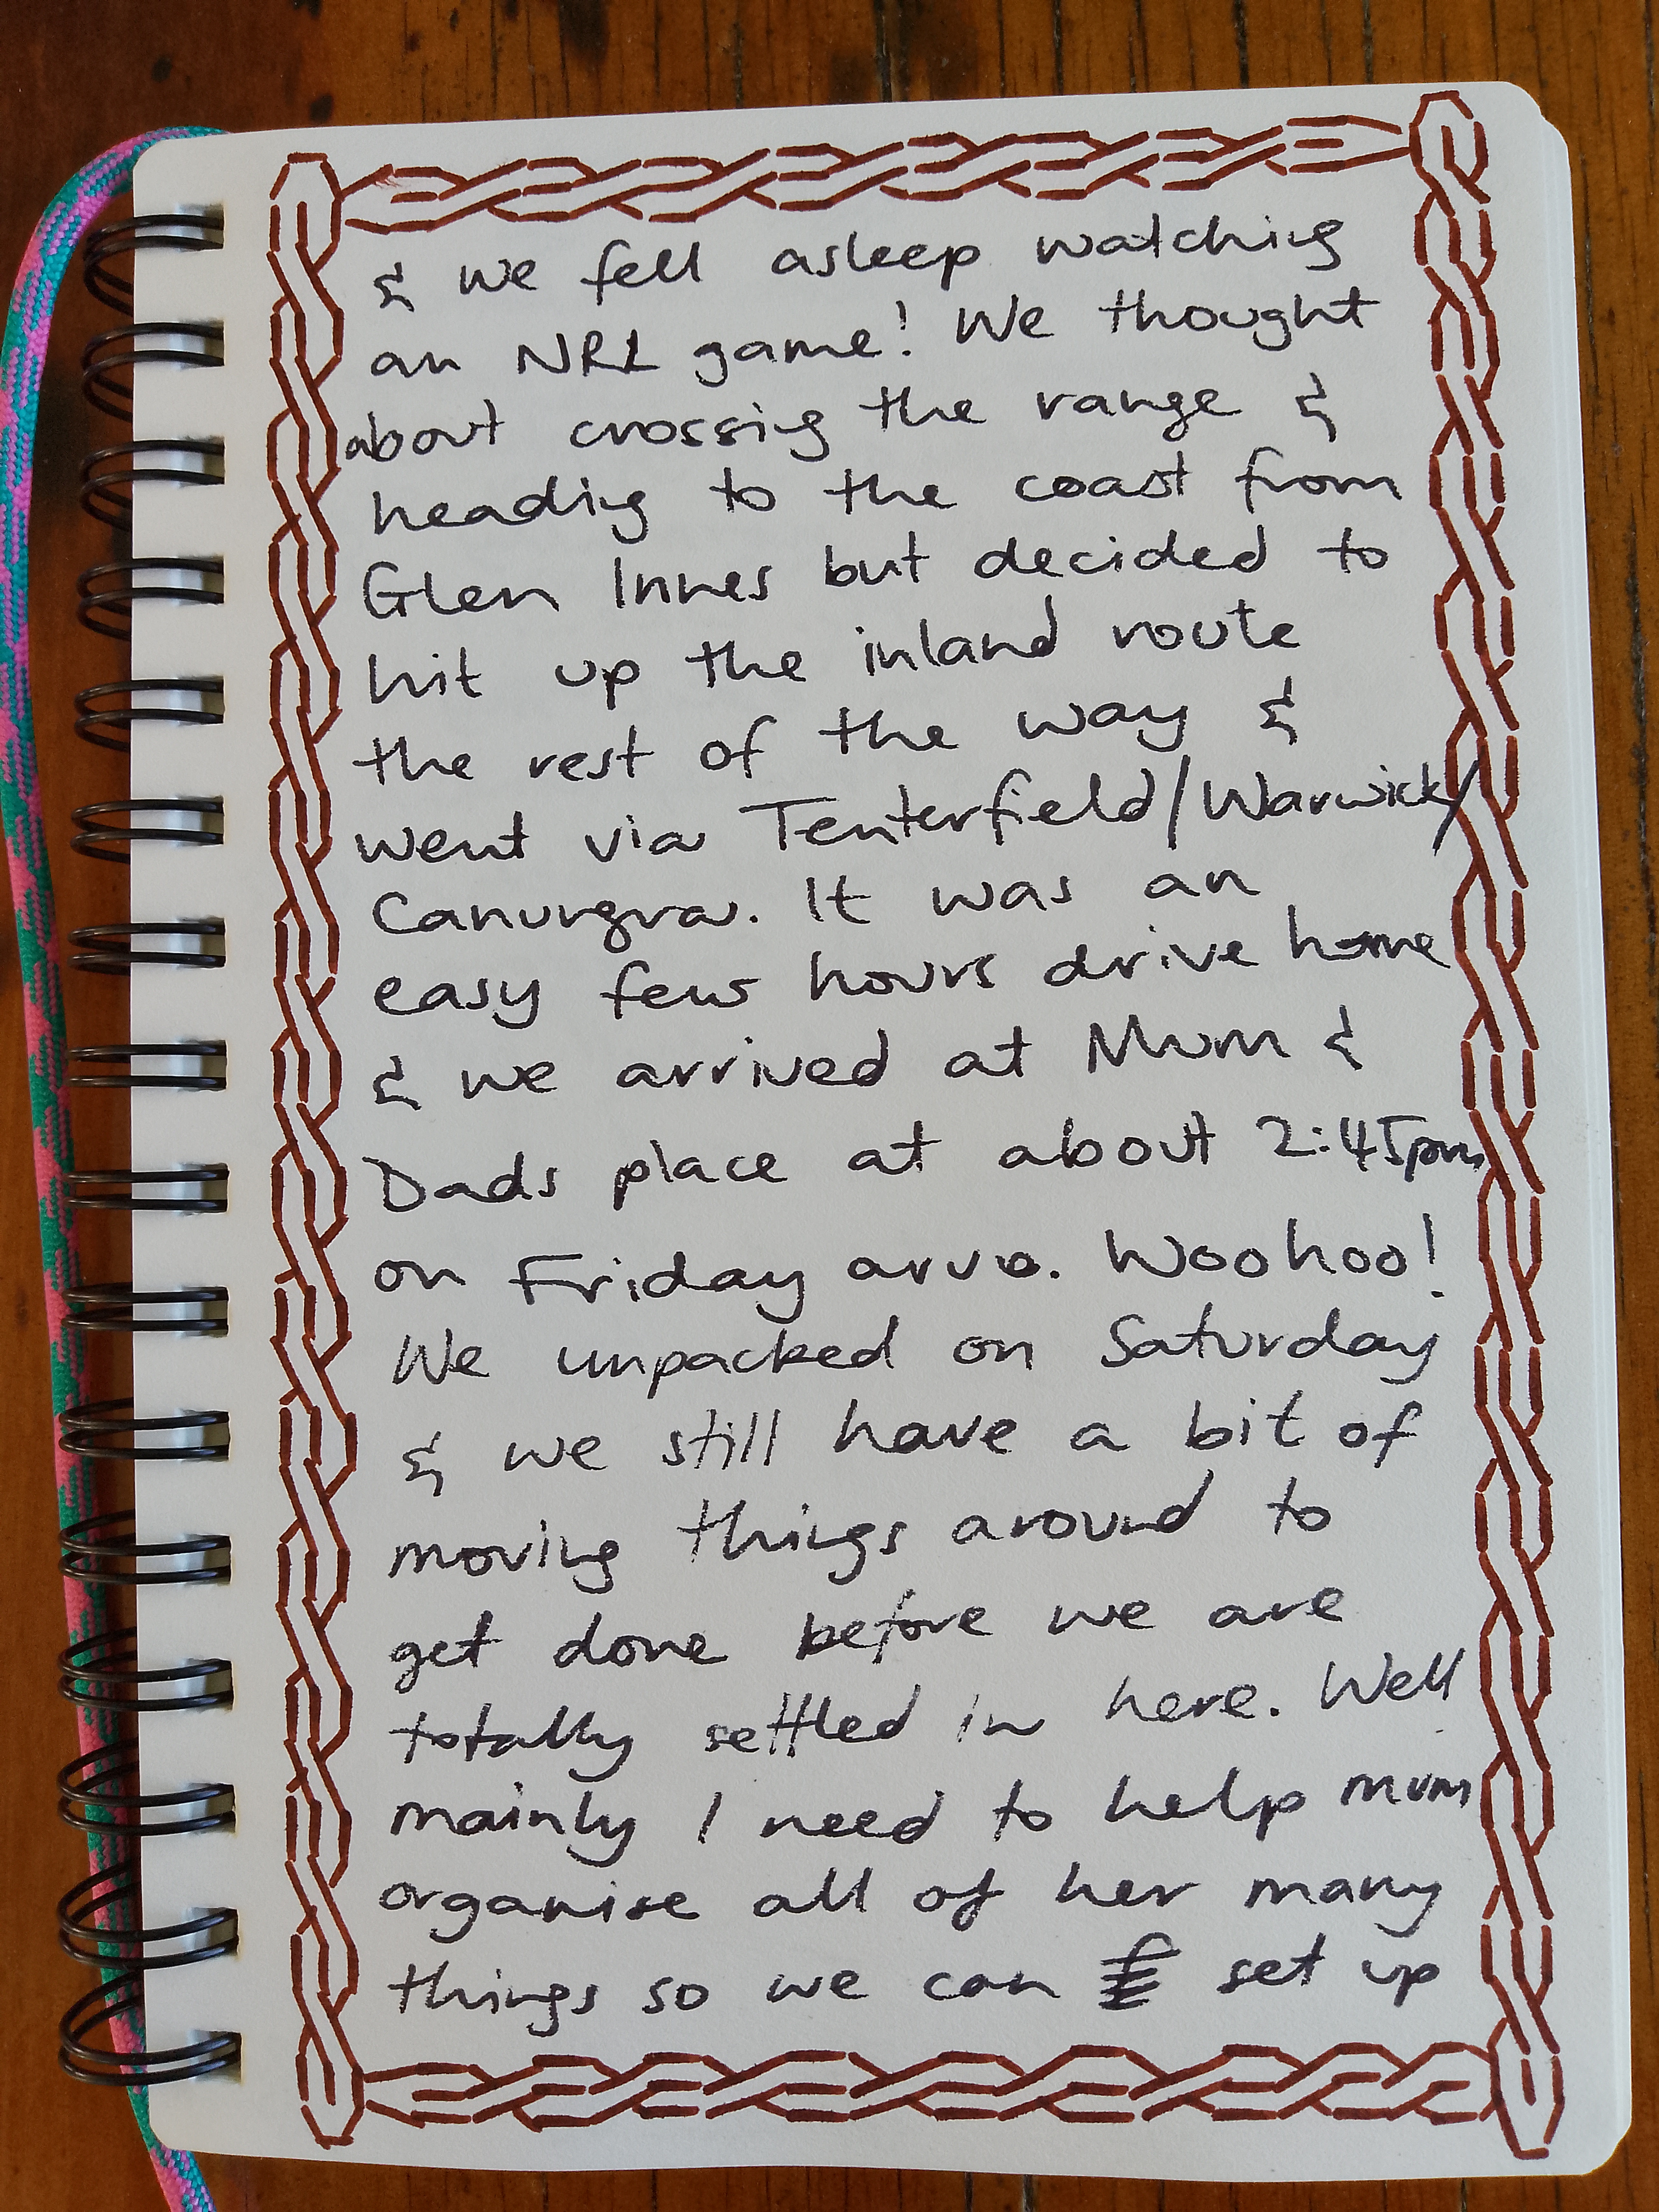 & we fell asleep watching
an NRL game! We thought
about crossing the range &
heading to the coast from
Glen Innes but decided to
hit up the inland route
the rest of the way &
went via Tenterfield/Warwick/
Canungra. It was an
easy few hours drive home
& we arrived at Mum &
Dads place at about 2:45pm
on Friday arvo. Woohoo!
We unpacked on Saturday
& we still have a bit of
moving things around to
get done before we are
totally settled in here. Well
mainly I need to help mum
organise all of her many
things so we can set up